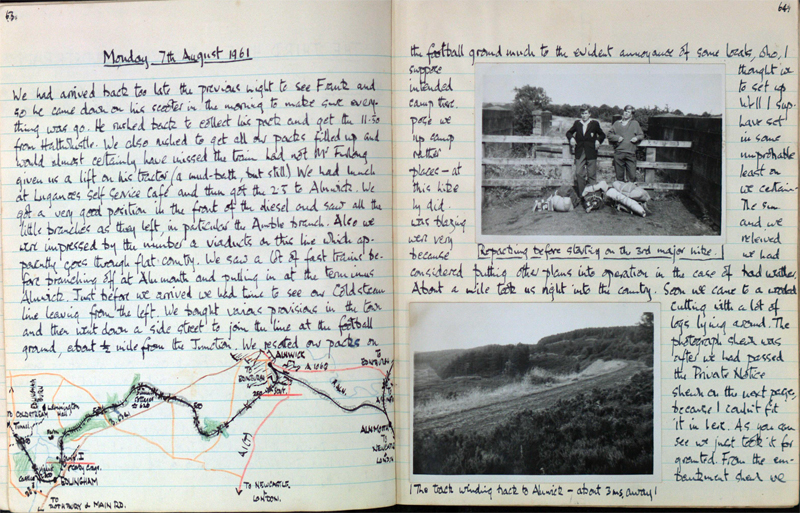 63.
Monday 7th August 1961
We had arrived back too late the previous night to see Frantz and
so he came down on his scooter in the morning to make sure every-
thing was go. He rushed back to collect his pack and get the 11.50
from Haltwhistle. We also rushed to get all our packs filled up and
would almost certainly have missed the train had not Mr Furlong
given us a lift on his tractor (a mud-bath, but still) We had lunch
at Lugano's Self Service Cafe and then got the 2.5 to Alnwick. We
got a very good position in the front of the diesel and saw all the
little branches as they left, in particular the Amble branch. Also we
were impressed by the number of viaducts on this line which ap-
parently goes through flat country. We saw a lot of fast trains be-
fore branching off at Alnmouth and pulling in at the terminus
Alnwick. Just before we arrived we had time to see our Coldstream
line leaving from the left. We bought various provisions in the town
and then went down a side street to join the line at the football
ground, about ½ mile from the Junction. We resorted our packs on
ALNWICK
TO EDINBURGH
A 1068
TO EDINBURGH
ALNMOUTH
TO NEWCASTLE
LONDON
A1(T)
TO NEWCASTLE
LONDON.
TO COLDSTREAM
EDLINGHAM
TO ROTHBURY & MAIN RD.
64.
the football ground much to the evident annoyance of some locals, who, I
suppose thought we
intended to set up
camp there. Well I sup-
pose we have set
up camp in some
rather improbable
places - at least on
this hike we certain-
ly did. The sun
was blazing and we
were very relieved
because we had
Repacking before starting on the 3rd major hike.
considered putting other plans into operation in the case of bad weather.
About a mile took us right into the country. Soon we came to a wooded
cutting with a lot of
logs lying around. The
photograph shewn was
after we had passed
the Private Notice
shewn on the next page,
because I couldn't fit
it in here. As you can
see we just took it for
granted. From the em-
bankment shewn we
The track winding back to Alnwick - about 3 mls. away!